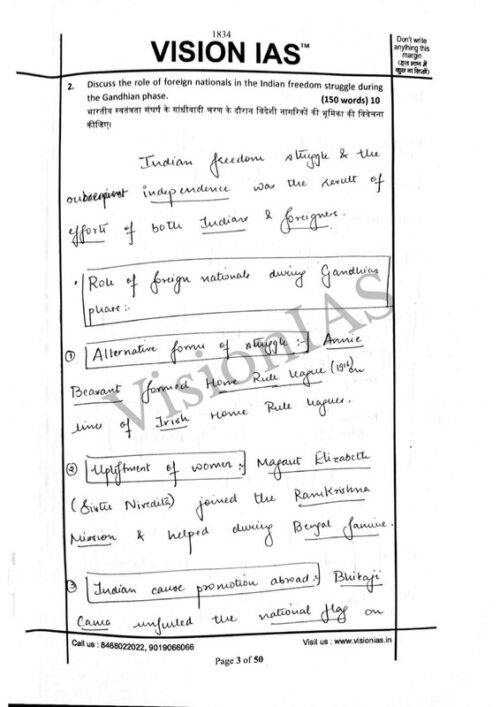 1834
VISION IAS™
Don't write
anything this
margin
(इस भाग में
कुछ ना लिखें)
2. Discuss the role of foreign nationals in the Indian freedom struggle during
the Gandhian phase. (150 words) 10
भारतीय स्वतंत्रता संघर्ष के गांधीवादी चरण के दौरान विदेशी नागरिकों की भूमिका की विवेचना
कीजिए।
Indian freedom struggle & the
subsequent independence was the result of
efforts of both Indians & foreigners.
• Role of foreign nationals during Gandhian
phase :-
① Alternative forms of struggle :- Annie
Beasant formed Home Rule League (1916) on
lines of Irish Home Rule leagues.
② Upliftment of women :- Magaut Elizabeth
(Sister Nivedita) joined the RamKrishna
Mission & helped during Bengal famine.
③ Indian cause promotion abroad :- Bhikaji
Cama unfurled the national flag on
VisionIAS
Call us : 8468022022, 9019066066
Visit us : www.visionias.in
Page 3 of 50